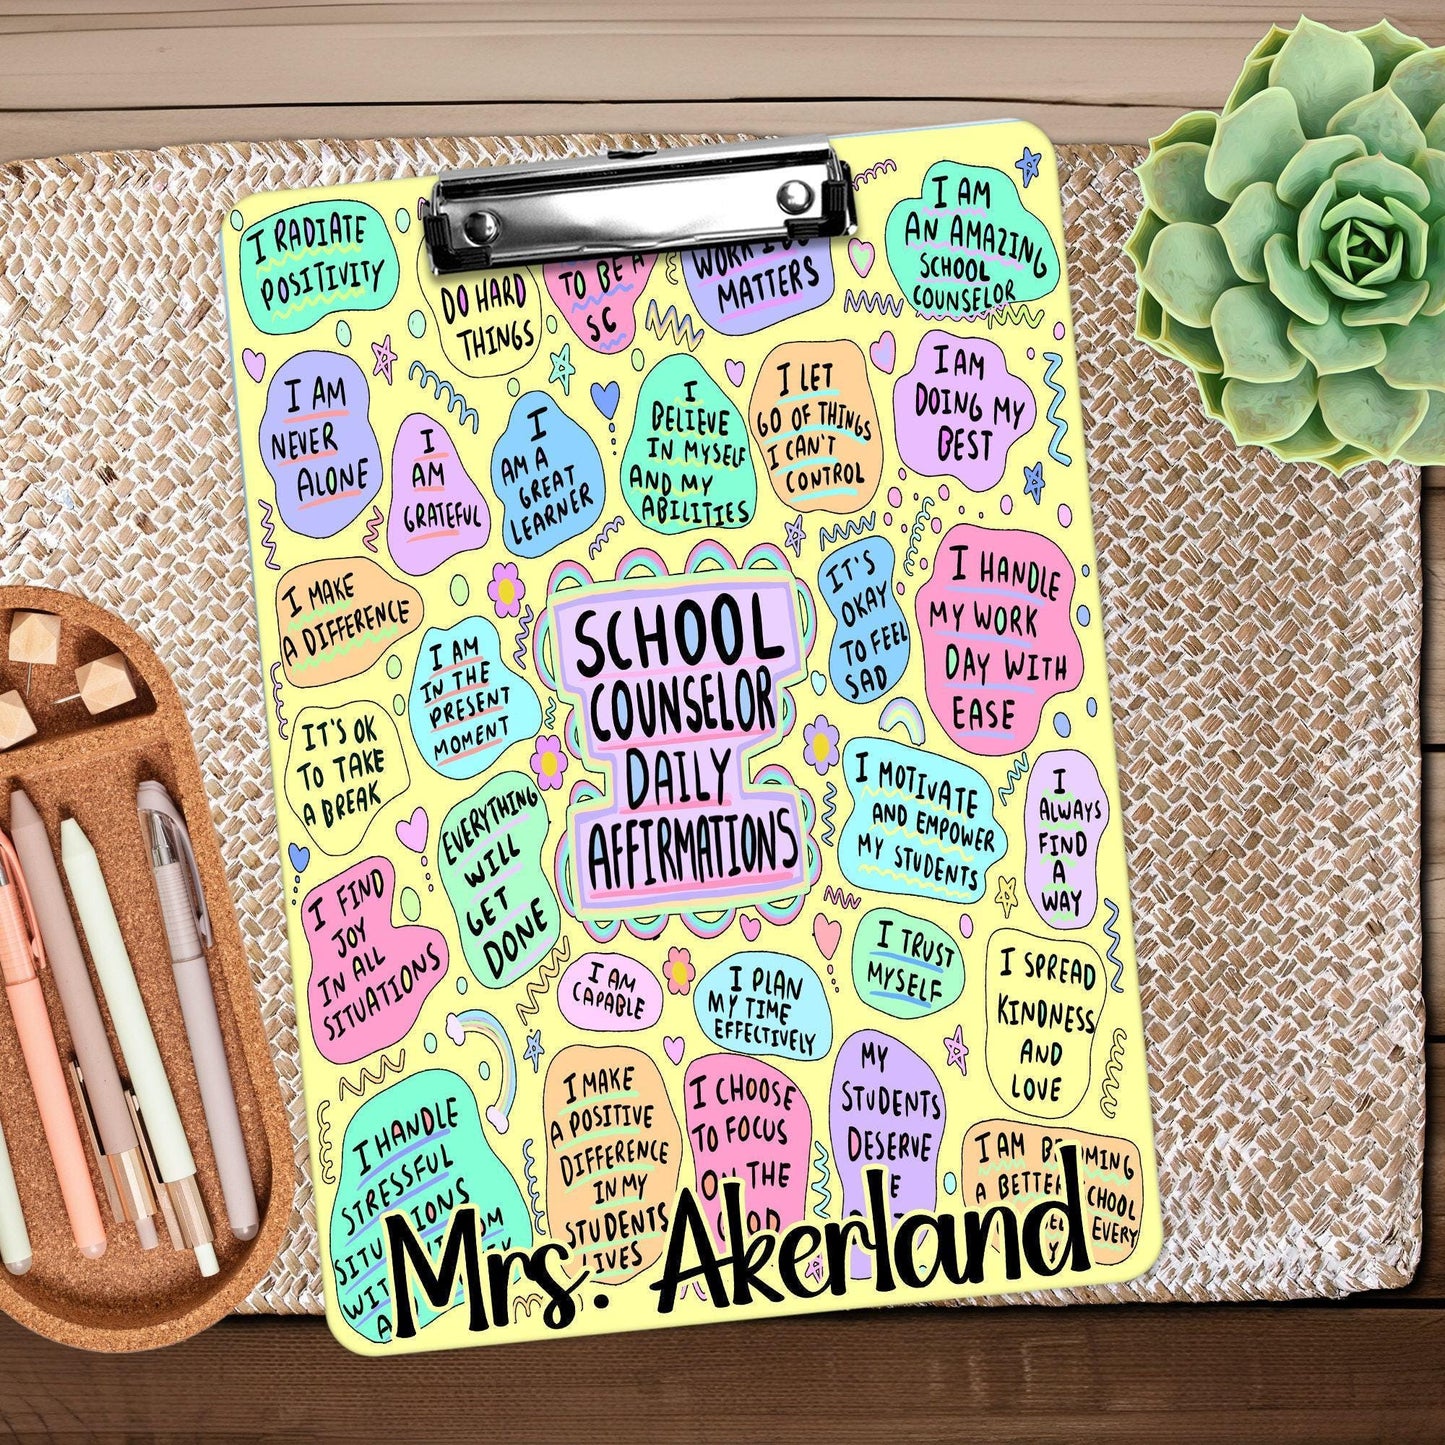 I RADIATE
POSITIVITY
DO HARD
THINGS
TO BE A
SC
WORK I DO
MATTERS
I AM
AN AMAZING
SCHOOL
COUNSELOR
I AM
NEVER
ALONE
I
AM
GRATEFUL
I
AM A
GREAT
LEARNER
I
BELIEVE
IN MYSELF
AND MY
ABILITIES
I LET
GO OF THINGS
I CAN'T
CONTROL
I AM
DOING MY
BEST
I MAKE
A DIFFERENCE
I AM
IN THE
PRESENT
MOMENT
SCHOOL
COUNSELOR
DAILY
AFFIRMATIONS
IT'S
OKAY
TO FEEL
SAD
I HANDLE
MY WORK
DAY WITH
EASE
IT'S OK
TO TAKE
A BREAK
EVERYTHING
WILL
GET
DONE
I MOTIVATE
AND EMPOWER
MY STUDENTS
I
ALWAYS
FIND
A
WAY
I FIND
JOY
IN ALL
SITUATIONS
I AM
CAPABLE
I PLAN
MY TIME
EFFECTIVELY
I TRUST
MYSELF
I SPREAD
KINDNESS
AND
LOVE
I HANDLE
STRESSFUL
I MAKE
A POSITIVE
DIFFERENCE
IN MY
STUDENTS
LIVES
I CHOOSE
TO FOCUS
ON THE
MY
STUDENTS
DESERVE
I AM
A BETTER
EVERY
Mrs. Akerland